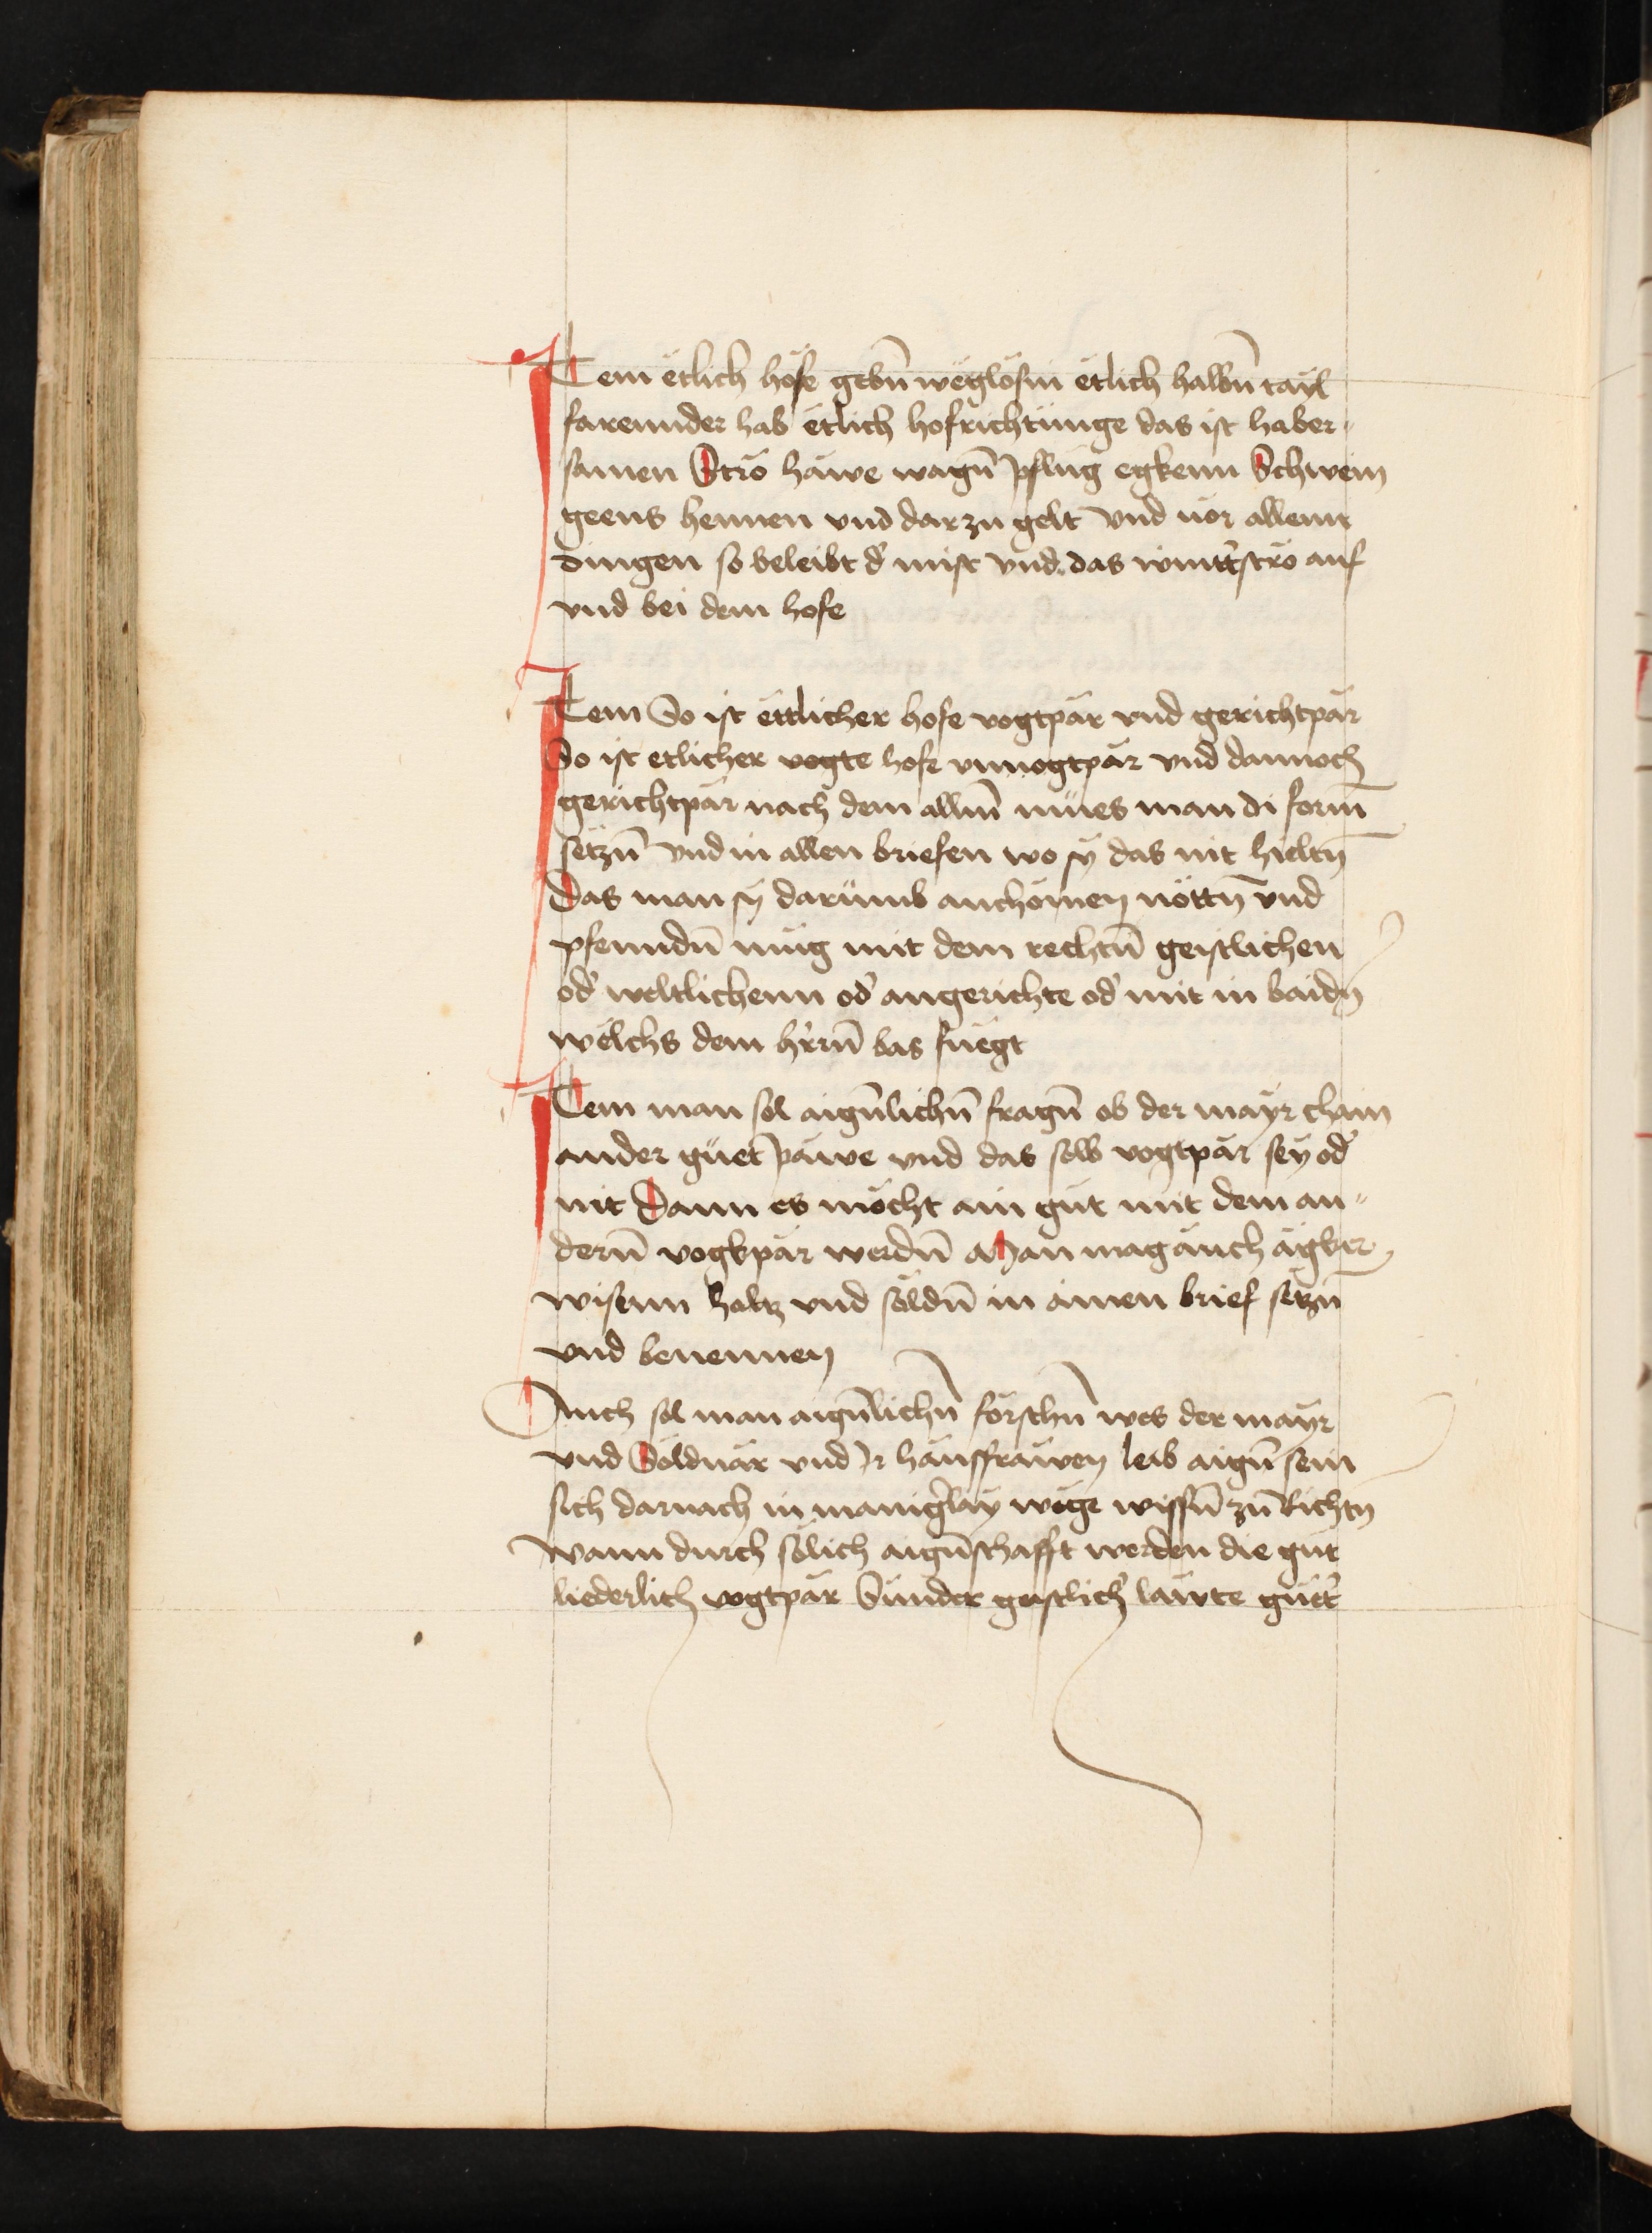 Item etlich höfe gebn̄ weglösin etlich halbn̄ tayl
farennder hab etlich hofrichtunge das ist haber⸗
samen Stro häwe wagn̄ pflug egkenn Schwein
geens hennen vnd dar zu gelt vnd vor allenn
dingen so beleibt d' mist vnd das wintt'stro auf
vnd bei dem hofe
Item So ist ettlicher hofe vogtpär vnd gerichtpär
So ist etlicher vogte hofe vnuogtpär vnd dannoch
gerichtpär nach dem allm̄ mues man di form̄
setzn̄ vnd in allen briefen wo sy das nit hieltn̄
Das man sy darumb anchömen nöttn̄ vnd
pfenndn̄ mug mit dem rechtn̄ geistlichen
od' weltlichenn od' angerichte od' mit in baidn̄
welchs dem hr̄rn̄ bas fuegt
Item man sol aign̄lichn̄ fragn̄ ob der mayr chain
ander guet päwe vnd das selb vogtpär sey od'
nit Dann es möcht ain gut mit dem an⸗
dern̄ vogtpär werdn̄ Man mag auch ägker
wisenn holtz vnd söldn̄ in ainen brief setzn̄
vnd benennen
Auch sol man aign̄lichn̄ forschn̄ wes der mayr
vnd Söldnär vnd Ir hausfrawen leib aign̄ sein
sich darnach in manig'lay wege wissn̄ zu Richtn̄
wann durch sölich aign̄schafft werden die gut
liederlich vogtpär Sunder geistlich' läwte guet'